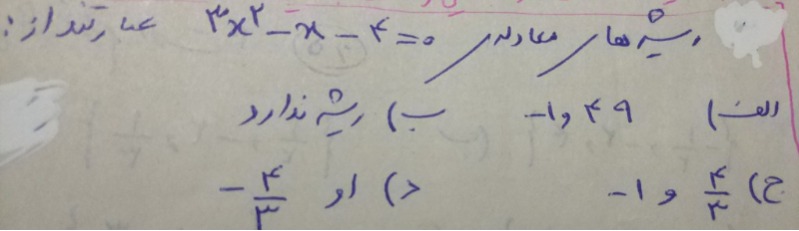 ریشه های معادله ۳x² - x - ۴ = ۰ عبارتند از:
الف) ۴۹ و ۱- ب) ریشه ندارد
ج) ۴/۳ و ۱- د) ۱ و ۴/۳-